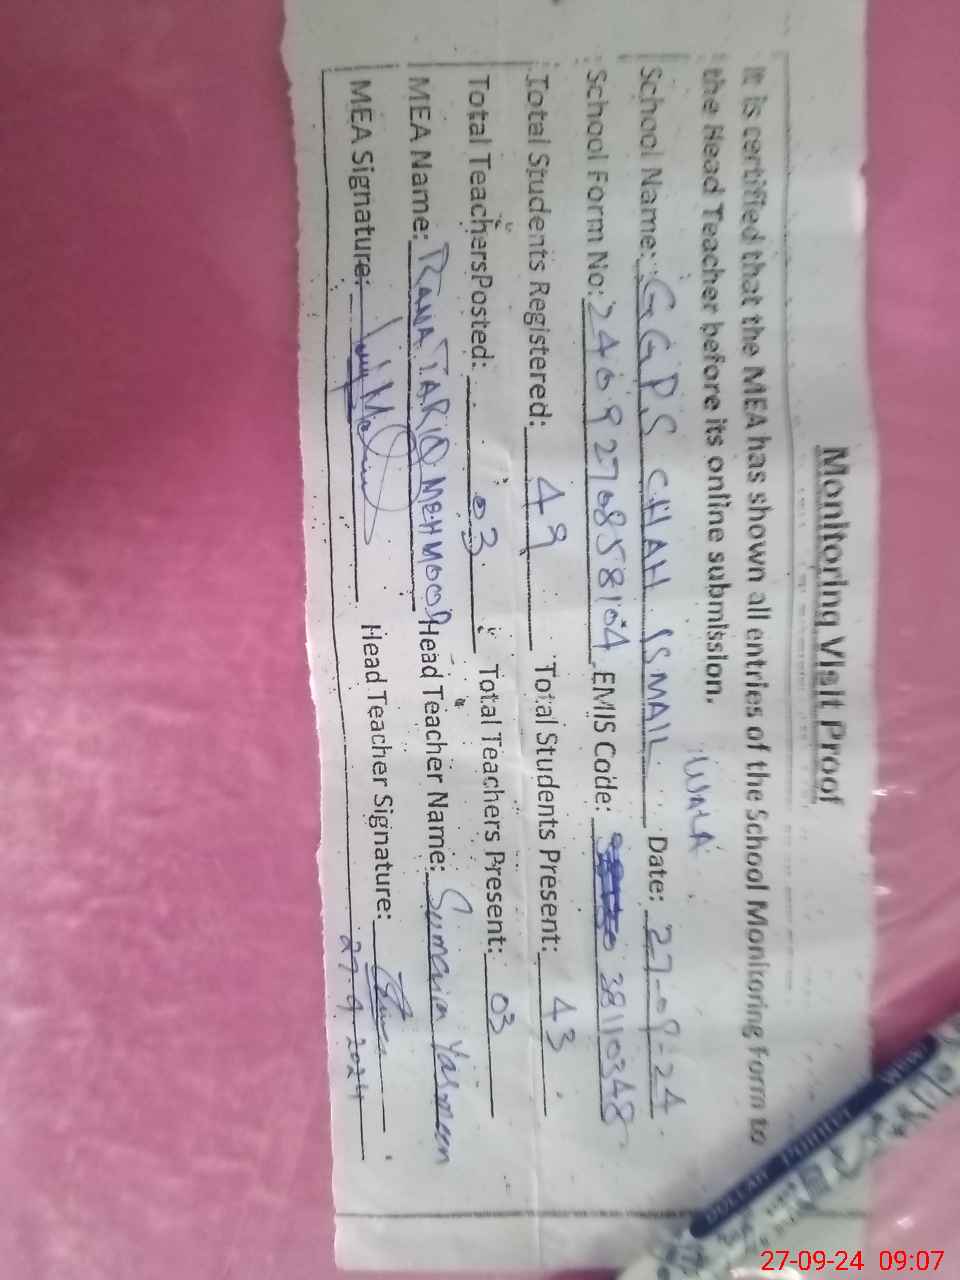 Monitoring Visit Proof
It is certified that the MEA has shown all entries of the School Monitoring Form to
the Head Teacher before its online submission.
WALA
School Name: GGPS CHAH ISMAIL Date: 27-09-24
School Form No: 2409270858104 EMIS Code: 38110348
Total Students Registered: 49 Total Students Present: 43
Total TeachersPosted: 03 Total Teachers Present: 03
MEA Name: RANA TARIQ MEHMOOD Head Teacher Name: Sumaira Yasmeen
MEA Signature: Head Teacher Signature:
27-9-2024
DOLLAR Pointer
27-09-24 09:07